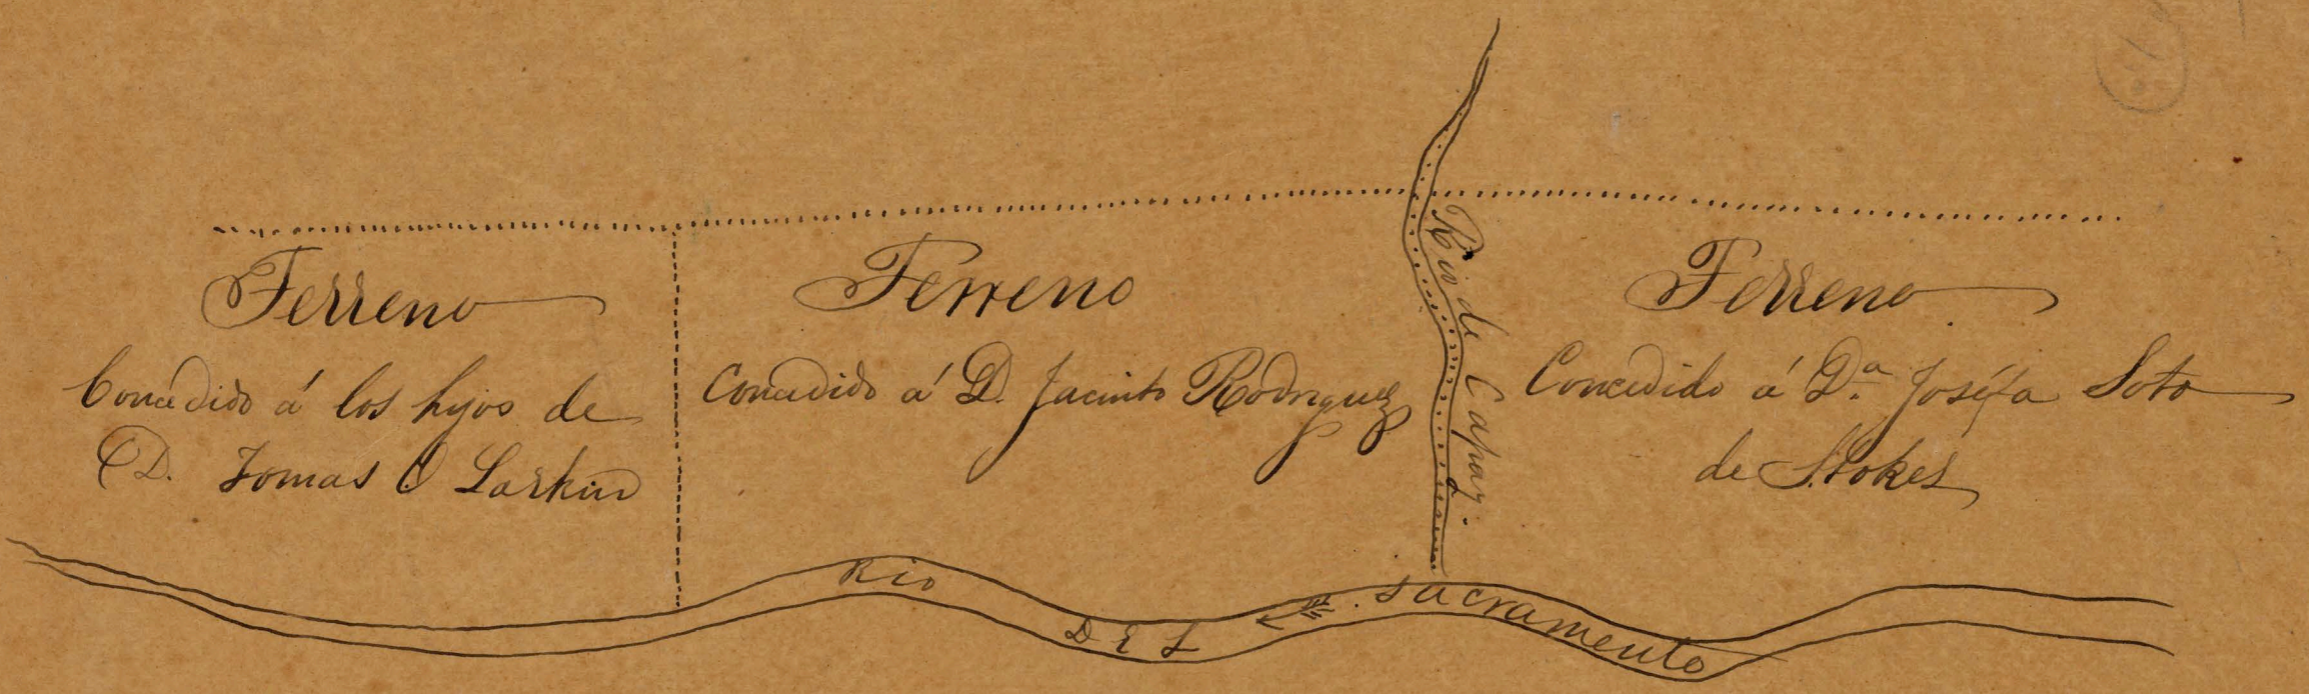 Terreno
Concedido á los hijos de
D. Tomas O Larkin
Terreno
Concedido á D. Jacinto Rodriguez
Rio de Capay.
Terreno
Concedido á D.ª Joséfa Soto
de Stokes
Rio DEL Sacramento